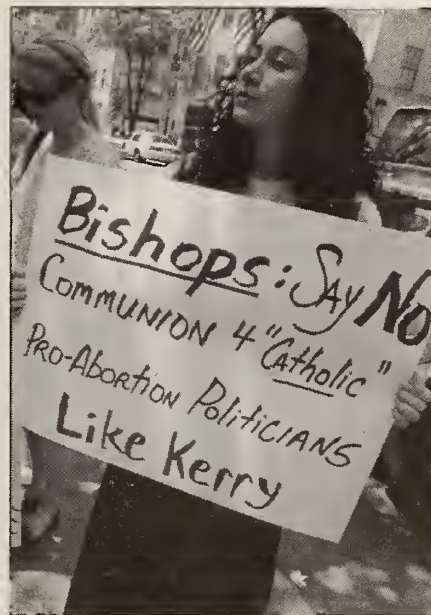 Bishops: SAY NO
COMMUNION 4 "Catholic"
PRO-ABORTION POLITICIANS
Like Kerry